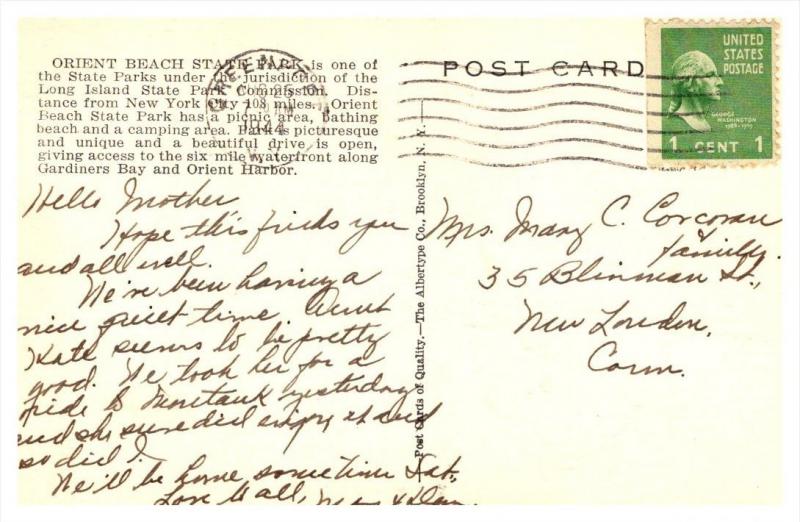 ORIENT BEACH STATE PARK is one of
the State Parks under the jurisdiction of the
Long Island State Park Commission. Dis-
tance from New York City 108 miles. Orient
Beach State Park has a picnic area, bathing
beach and a camping area. Park is picturesque
and unique and a beautiful drive is open,
giving access to the six mile waterfront along
Gardiners Bay and Orient Harbor.
GREENPORT
1944
POST CARD
UNITED
STATES
POSTAGE
GEORGE
WASHINGTON
1789-1797
1 CENT 1
Hello Mother
Hope this finds you
and all well.
We're been having a
nice quiet time Aunt
Kate seems to be pretty
good. We took her for a
ride to Montauk yesterday
and she sure did enjoy it and
so did I.
We'll be home sometime Sat.,
Love to all,
—Post Cards of Quality.—The Albertype Co., Brooklyn, N. Y.—
Mrs. Mary C. Corcoran
& family.
35 Blinman St.,
New London,
Conn.